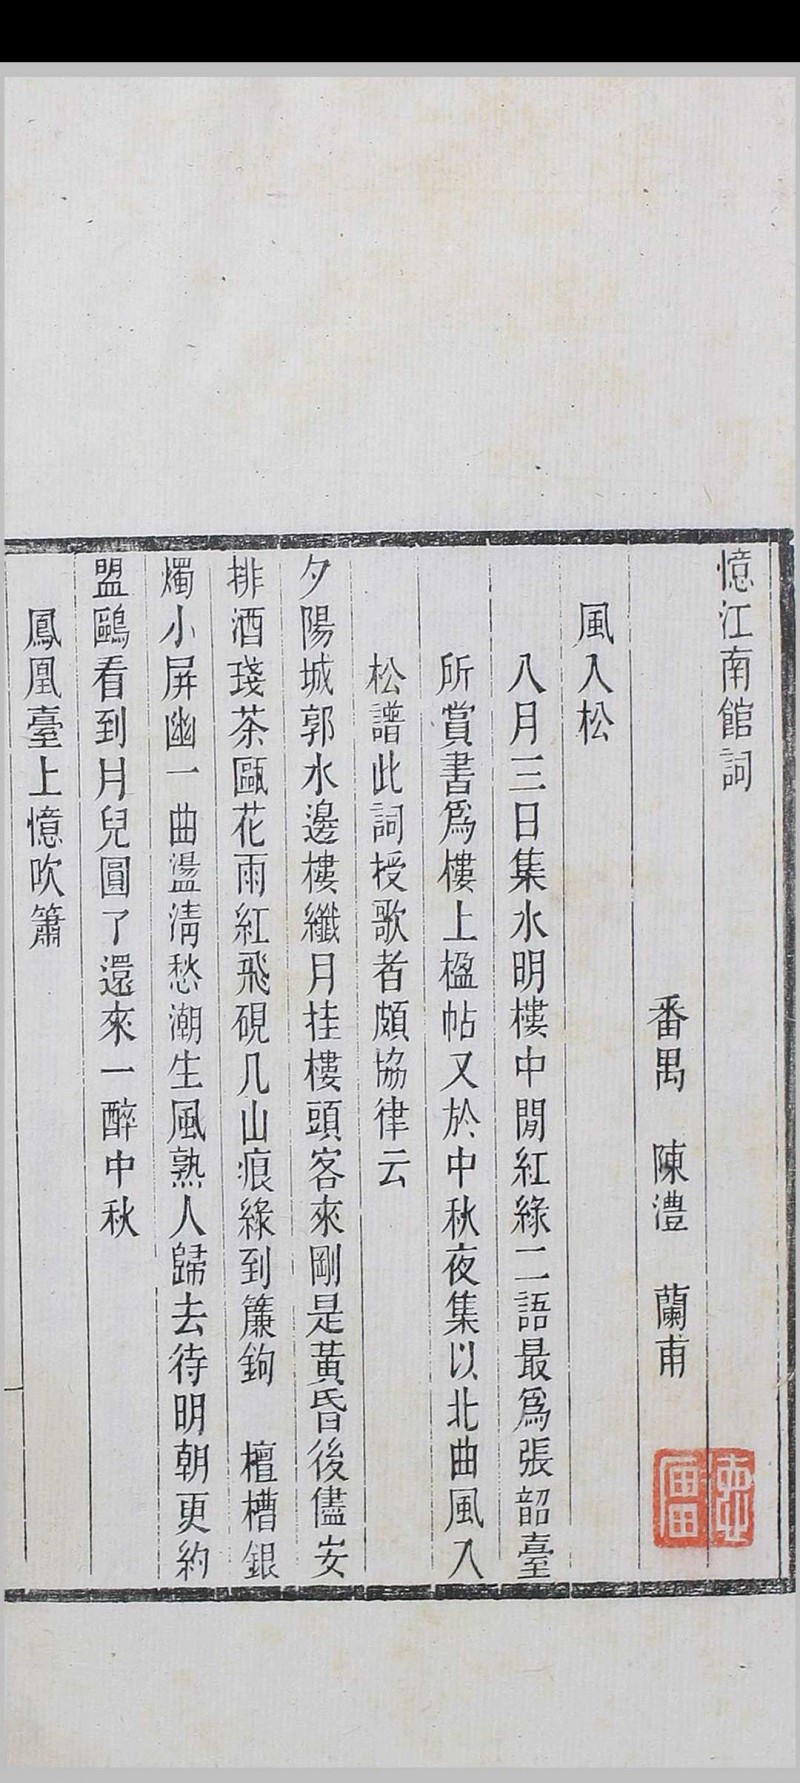 憶江南館詞
番禺　陳澧　蘭甫
風入松
八月三日集水明樓中閒紅緑二語最爲張韶臺
所賞書爲樓上楹帖又於中秋夜集以北曲風入
松譜此詞授歌者頗協律云
夕陽城郭水邊樓纖月挂樓頭客來剛是黃昏後儘安
排酒琖茶甌花雨紅飛硯几山痕綠到簾鉤　檀槽銀
燭小屏幽一曲盪淸愁潮生風熟人歸去待明朝更約
盟鷗看到月兒圓了還來一醉中秋
鳳凰臺上憶吹簫